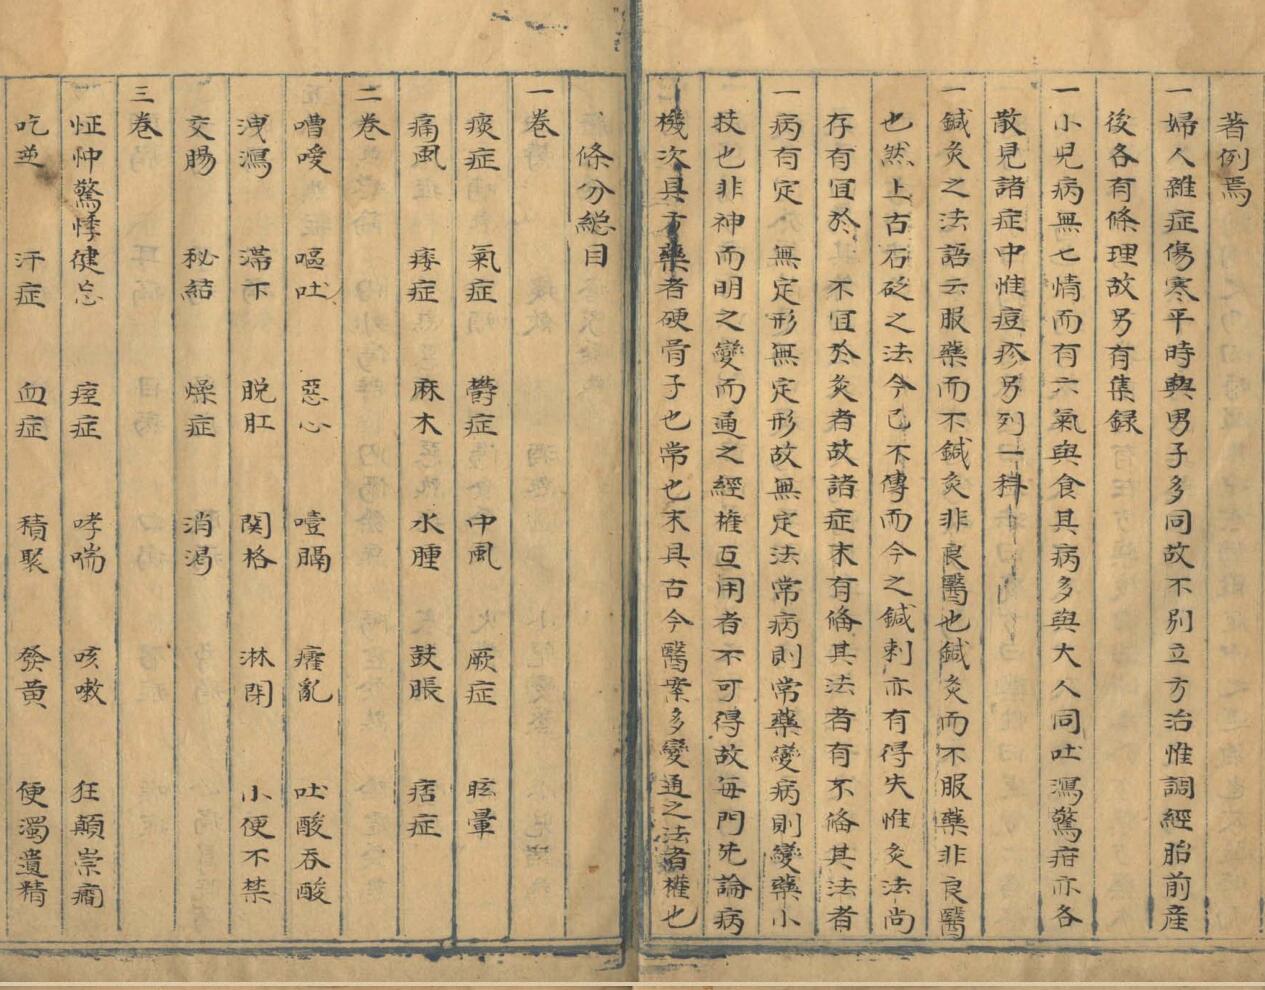 著例焉
一婦人雜症傷寒平時與男子多同故不別立方治惟調經胎前産
後各有條理故另有集録
一小児病無七情而有六氣與食其病多與大人同吐瀉驚疳亦各
散見諸症中惟痘疹另列一科
一鍼灸之法語云服藥而不鍼灸非良醫也鍼灸而不服藥非良醫
也然上古石砭之法今已不傳而今之鍼刺亦有得失惟灸法尚
存有宜於其不宜於灸者故諸症末有偹其法者有不偹其法者
一病有定 無定形無定形故無定法常病則常藥變病則變藥小
技也非神而明之變而通之經權互用者不可得故每門先論病
機次具方藥者硬骨子也常也末具古今醫案多變通之法者權也
條分総目
一卷
痰症 氣症 鬱症 中風 厥症 眩暈
痛風 痿症 麻木 水腫 鼓脹 痞症
二卷
嘈噯 嘔吐 惡心 噎膈 癨亂 吐酸吞酸
洩瀉 滯下 脱肛 関格 淋閉 小便不禁
交腸 秘結 燥症 消渴
三卷
怔忡驚悸健忘 痓症 哮喘 咳嗽 狂顛祟癎
吃逆 汗症 血症 積聚 發黄 便濁遺精